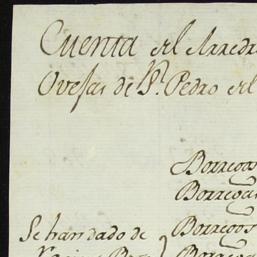 Cuenta del Arreda
Ovejas de Sn. Pedro del
Borregos
Borregas
Se han dado de Borregos
Borregas